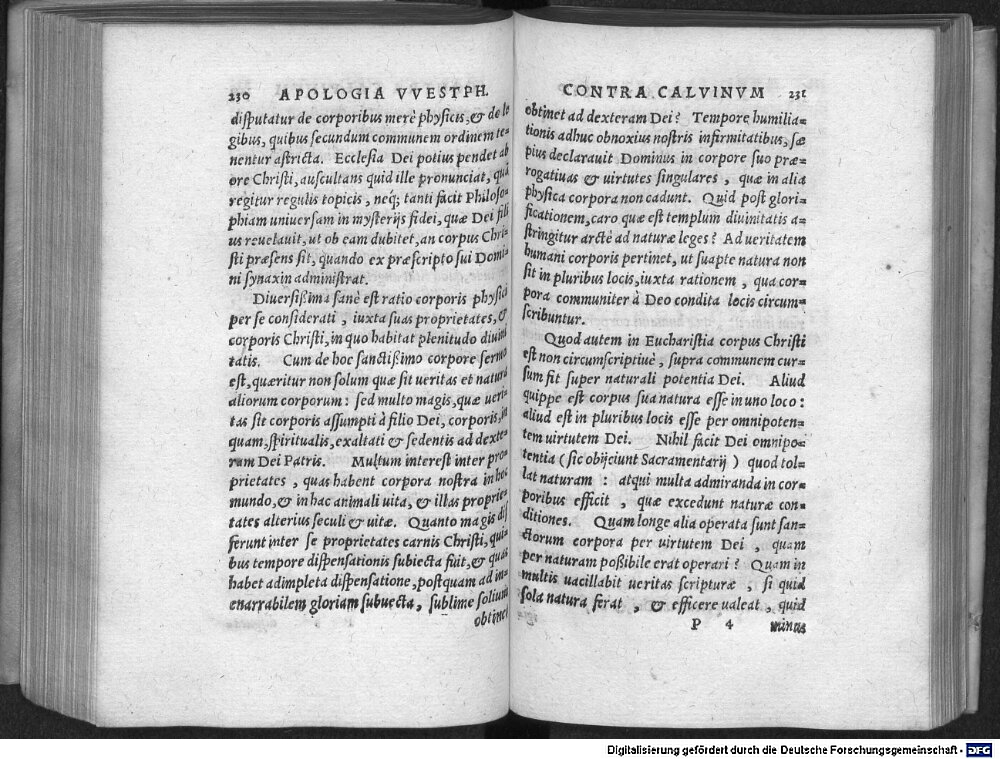 230 APOLOGIA VVESTPH.
disputatur de corporibus merè physicis, & de le
gibus, quibus secundum communem ordinem te-
nentur astricta. Ecclesia Dei potius pendet ab
ore Christi, auscultans quid ille pronunciat, quã
regitur regulis topicis, neq; tanti facit Philoso-
phiam uniuersam in mysterijs fidei, quæ Dei fili
us reuelauit, ut ob eam dubitet, an corpus Chri-
sti præsens sit, quando ex præscripto sui Domi-
ni synaxin administrat.
Diuersißima sanè est ratio corporis physici
per se considerati, iuxta suas proprietates, &
corporis Christi, in quo habitat plenitudo diuini
tatis. Cum de hoc sanctißimo corpore sermo
est, quæritur non solum quæ sit ueritas et natura
aliorum corporum: sed multo magis, quæ ueri-
tas sit corporis assumpti à filio Dei, corporis, in
quam, spiritualis, exaltati & sedentis ad dexte-
ram Dei Patris. Multum interest inter pro-
prietates, quas habent corpora nostra in hoc
mundo, & in hac animali uita, & illas proprie-
tates alterius seculi & uitæ. Quanto magis dif
ferunt inter se proprietates carnis Christi, qui-
bus tempore dispensationis subiecta fuit, & quas
habet adimpleta dispensatione, postquam ad in-
enarrabilem gloriam subuecta, sublime solium
obtinet
CONTRA CALVINVM 231
obtinet ad dexteram Dei? Tempore humilia-
tionis adhuc obnoxius nostris infirmitatibus, sæ
pius declarauit Dominus in corpore suo præ-
rogatiuas & uirtutes singulares, quæ in alia
physica corpora non cadunt. Quid post glori-
ficationem, caro quæ est templum diuinitatis a-
stringitur arctè ad naturæ leges? Ad ueritatem
humani corporis pertinet, ut suapte natura non
sit in pluribus locis, iuxta rationem, qua cor-
pora communiter à Deo condita locis circum-
scribuntur.
Quod autem in Eucharistia corpus Christi
est non circumscriptiuè, supra communem cur-
sum fit super naturali potentia Dei. Aliud
quippe est corpus sua natura esse in uno loco:
aliud est in pluribus locis esse per omnipoten-
tem uirtutem Dei. Nihil facit Dei omnipo-
tentia (sic obijciunt Sacramentarij) quod tol-
lat naturam: atqui multa admiranda in cor-
poribus efficit, quæ excedunt naturæ con-
ditiones. Quam longe alia operata sunt san-
ctorum corpora per uirtutem Dei, quam
per naturam poßibile erat operari? Quam in
multis uacillabit ueritas scripturæ, si quid
sola natura ferat, & efficere ualeat, quid
P 4 minus
Digitalisierung gefördert durch die Deutsche Forschungsgemeinschaft - DFG